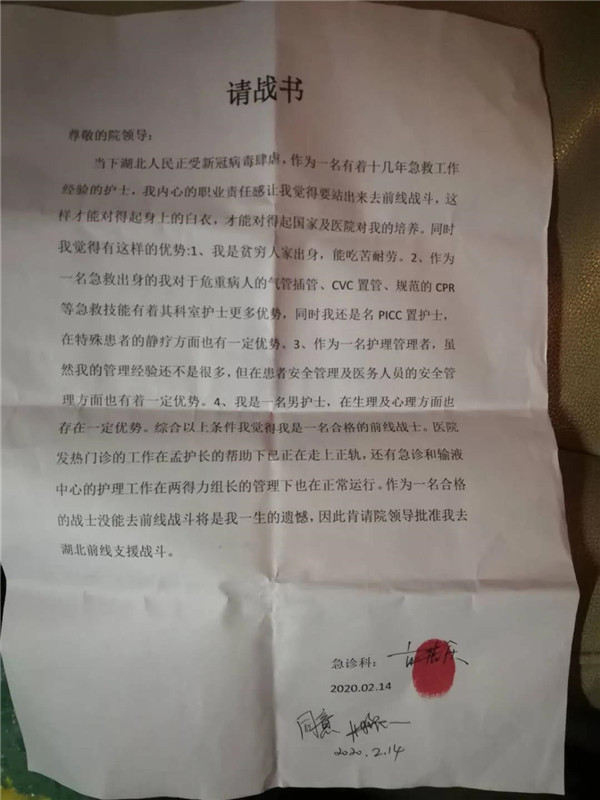 请战书
尊敬的院领导：
当下湖北人民正受新冠病毒肆虐，作为一名有着十几年急救工作
经验的护士，我内心的职业责任感让我觉得要站出来去前线战斗，这
样才能对得起身上的白衣，才能对得起国家及医院对我的培养。同时
我觉得有这样的优势:1、我是贫穷人家出身，能吃苦耐劳。2、作为
一名急救出身的我对于危重病人的气管插管、CVC 置管、规范的 CPR
等急救技能有着其科室护士更多优势，同时我还是名 PICC 置护士，
在特殊患者的静疗方面也有一定优势。3、作为一名护理管理者，虽
然我的管理经验还不是很多，但在患者安全管理及医务人员的安全管
理方面也有着一定优势。4、我是一名男护士，在生理及心理方面也
存在一定优势。综合以上条件我觉得我是一名合格的前线战士。医院
发热门诊的工作在孟护长的帮助下已正在走上正轨，还有急诊和输液
中心的护理工作在两得力组长的管理下也在正常运行。作为一名合格
的战士没能去前线战斗将是我一生的遗憾，因此肯请院领导批准我去
湖北前线支援战斗。
急诊科：
2020.02.14
同意
2020.2.14